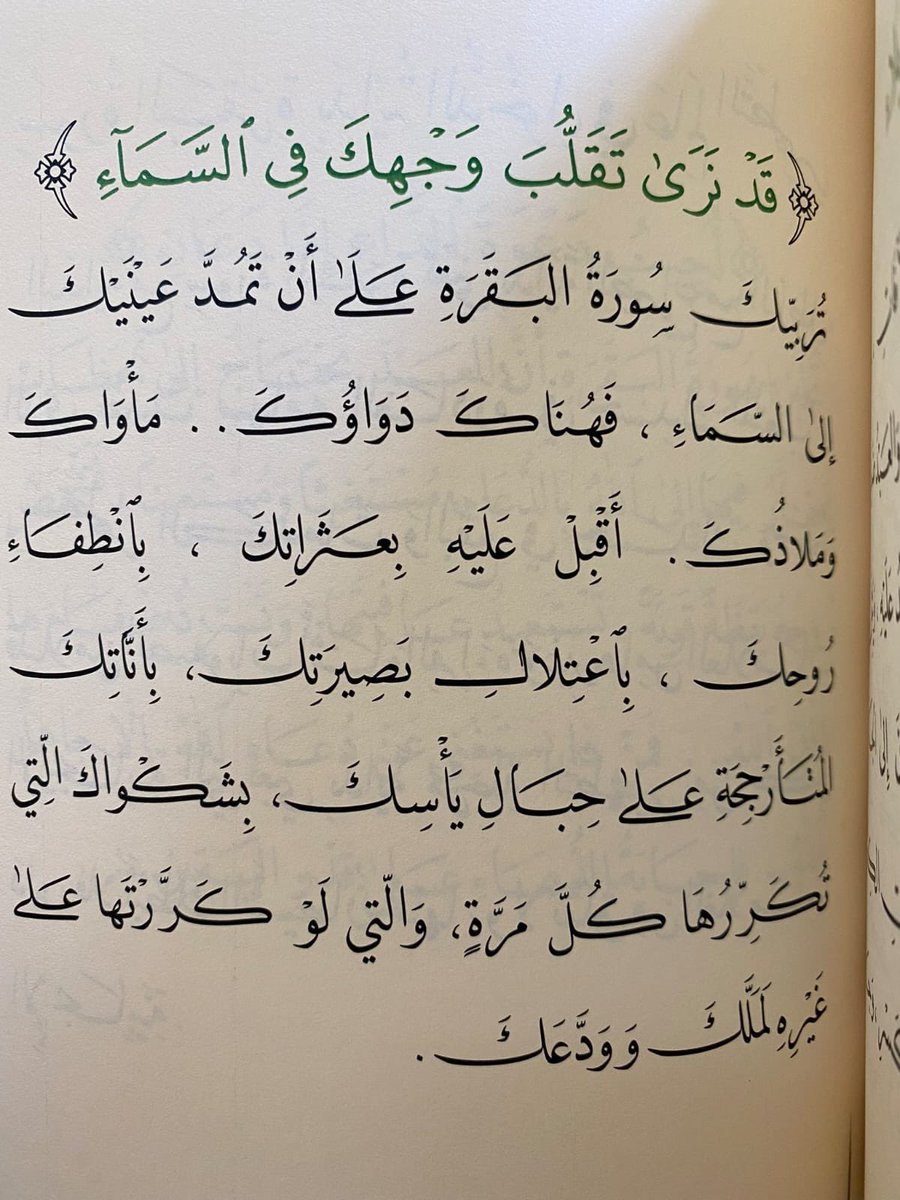 ﴿ قَدْ نَرَىٰ تَقَلُّبَ وَجْهِكَ فِي ٱلسَّمَآءِ ﴾
تُرَبِّيكَ سُورَةُ البَقَرَةِ عَلَىٰ أَنْ تَمُدَّ عَيْنَيْكَ
إِلىٰ السَّمَاءِ ، فَهُنَاكَ دَوَاؤُكَ.. مَأْوَاكَ
وَمَلاذُكَ. أَقْبِلْ عَلَيْهِ بِعَثَرَاتِكَ ، بِٱنْطِفَاءِ
رُوحِكَ ، بِٱعْتِلالِ بَصِيرَتِكَ، بِأَنَّاتِكَ
المُتَأَرْجِحَةِ عَلىٰ حِبَالِ يَأْسِكَ، بِشَكْوَاكَ الَّتِي
تُكَرِّرُهَا كُلَّ مَرَّةٍ، وَالَّتِي لَوْ كَرَّرْتَها عَلىٰ
غَيْرِهِ لَمَلَّكَ وَوَدَّعَكَ.